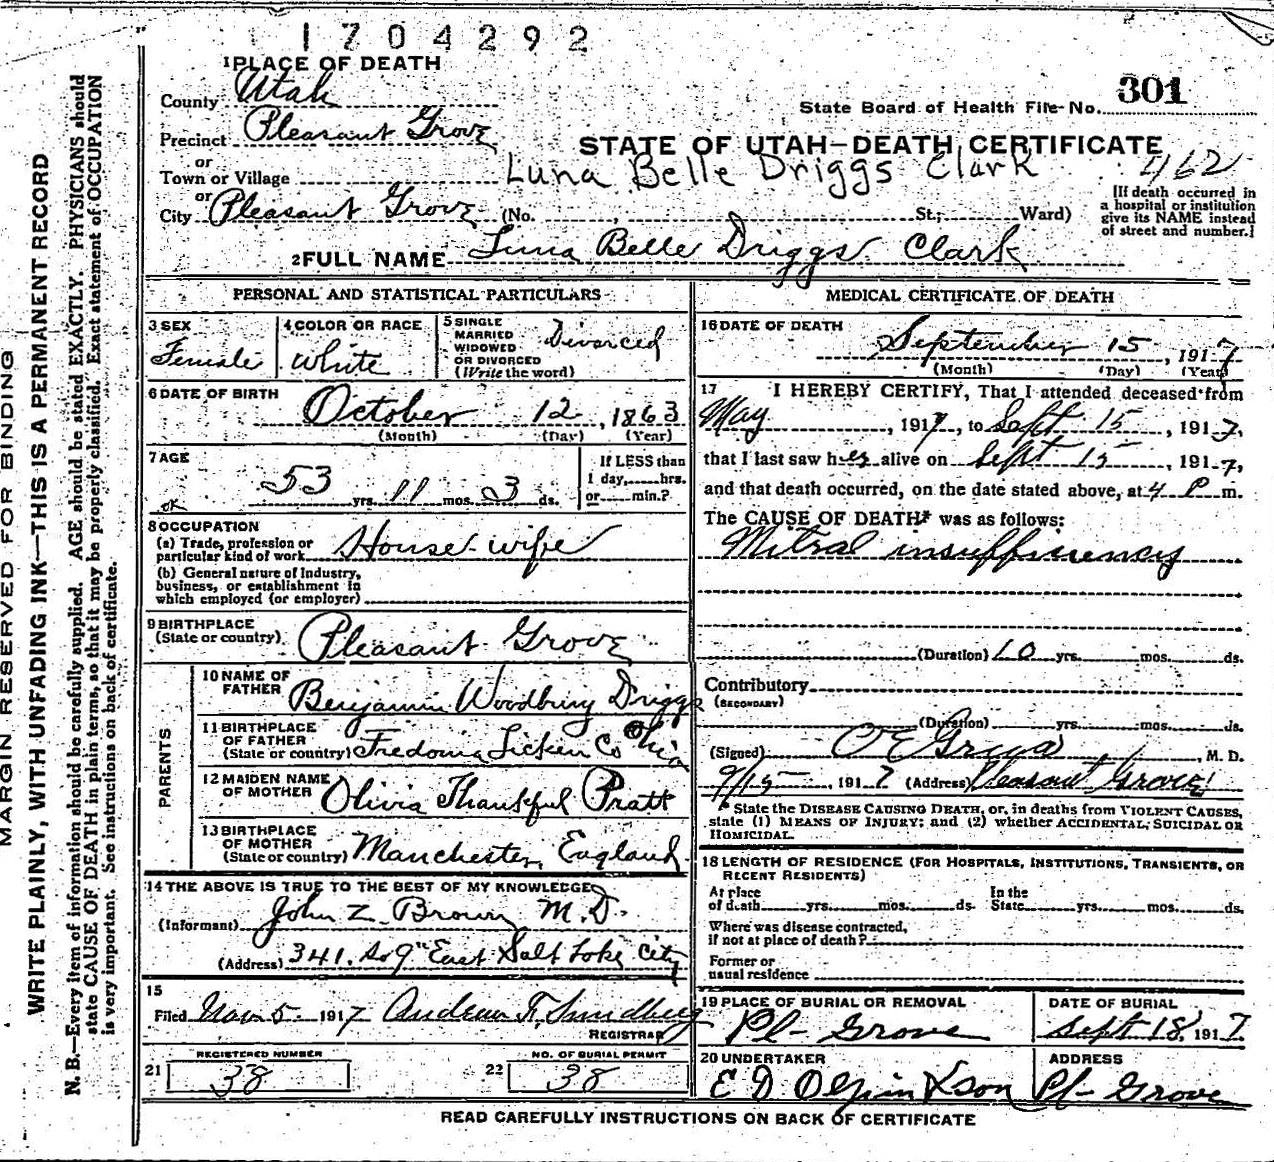 1704292
1 PLACE OF DEATH
County Utah
State Board of Health File No. 301
Precinct Pleasant Grove
STATE OF UTAH—DEATH CERTIFICATE
or
Town or Village
Luna Belle Driggs Clark
462
or
City Pleasant Grove (No. , St.; Ward)
[If death occurred in
a hospital or institution
give its NAME instead
of street and number.]
2 FULL NAME Luna Belle Driggs Clark
PERSONAL AND STATISTICAL PARTICULARS
3 SEX
Female
4 COLOR OR RACE
White
5 SINGLE
MARRIED
WIDOWED
OR DIVORCED
(Write the word)
Divorced
6 DATE OF BIRTH
October 12, 1863
(Month) (Day) (Year)
7 AGE
53 yrs. 11 mos. 3 ds.
If LESS than
1 day, hrs.
or min.?
ok
8 OCCUPATION
(a) Trade, profession or
particular kind of work House-wife
(b) General nature of Industry,
business, or establishment in
which employed (or employer)
9 BIRTHPLACE
(State or country) Pleasant Grove
PARENTS
10 NAME OF
FATHER Benjamin Woodbury Driggs
11 BIRTHPLACE
OF FATHER
(State or country) Fredonia Licken Co Ohio
12 MAIDEN NAME
OF MOTHER Olivia Thankful Pratt
13 BIRTHPLACE
OF MOTHER
(State or country) Manchester, England
14 THE ABOVE IS TRUE TO THE BEST OF MY KNOWLEDGE
(Informant) John Z Brown M.D.
(Address) 341. So 9" East Salt Lake City
15
Filed Nov 5 1917 Andrew F. Sundberg
REGISTRAR
REGISTERED NUMBER
21 38
NO. OF BURIAL PERMIT
22 38
MEDICAL CERTIFICATE OF DEATH
16 DATE OF DEATH
September 15, 1917
(Month) (Day) (Year)
17 I HEREBY CERTIFY, That I attended deceased from
May , 1917, to Sept 15, 1917,
that I last saw her alive on Sept 15, 1917,
and that death occurred, on the date stated above, at 4 P m.
The CAUSE OF DEATH* was as follows:
Mitral insufficiency
(Duration) 10 yrs. mos. ds.
Contributory
(SECONDARY)
(Duration) yrs. mos. ds.
(Signed) O E Grua, M. D.
9/15, 1917 (Address) Pleasant Grove
* State the DISEASE CAUSING DEATH, or, in deaths from VIOLENT CAUSES,
state (1) MEANS OF INJURY; and (2) whether ACCIDENTAL, SUICIDAL OR
HOMICIDAL.
18 LENGTH OF RESIDENCE (FOR HOSPITALS, INSTITUTIONS, TRANSIENTS, OR
RECENT RESIDENTS)
At place
of death yrs. mos. ds.
In the
State yrs. mos. ds.
Where was disease contracted,
if not at place of death?
Former or
usual residence
19 PLACE OF BURIAL OR REMOVAL
Pl- Grove
DATE OF BURIAL
Sept 18, 1917.
20 UNDERTAKER
E D Olpin & son
ADDRESS
Pl- Grove
READ CAREFULLY INSTRUCTIONS ON BACK OF CERTIFICATE
MARGIN RESERVED FOR BINDING
WRITE PLAINLY, WITH UNFADING INK—THIS IS A PERMANENT RECORD
N. B.—Every item of information should be carefully supplied. AGE should be stated EXACTLY. PHYSICIANS should
state CAUSE OF DEATH in plain terms, so that it may be properly classified. Exact statement of OCCUPATION
is very important. See instructions on back of certificate.